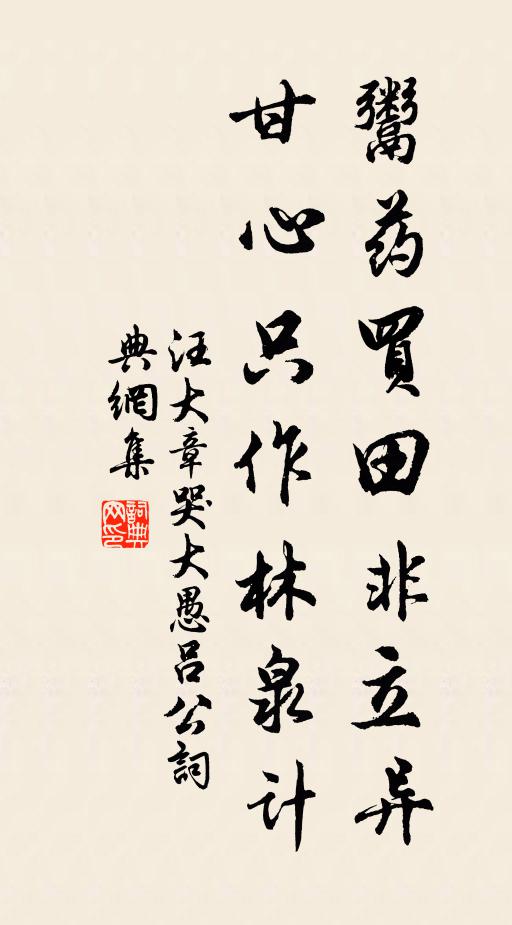 鬻药買田非立异
甘心只作林泉計
汪大章哭大愚吕公詞
典網集
詞典网印